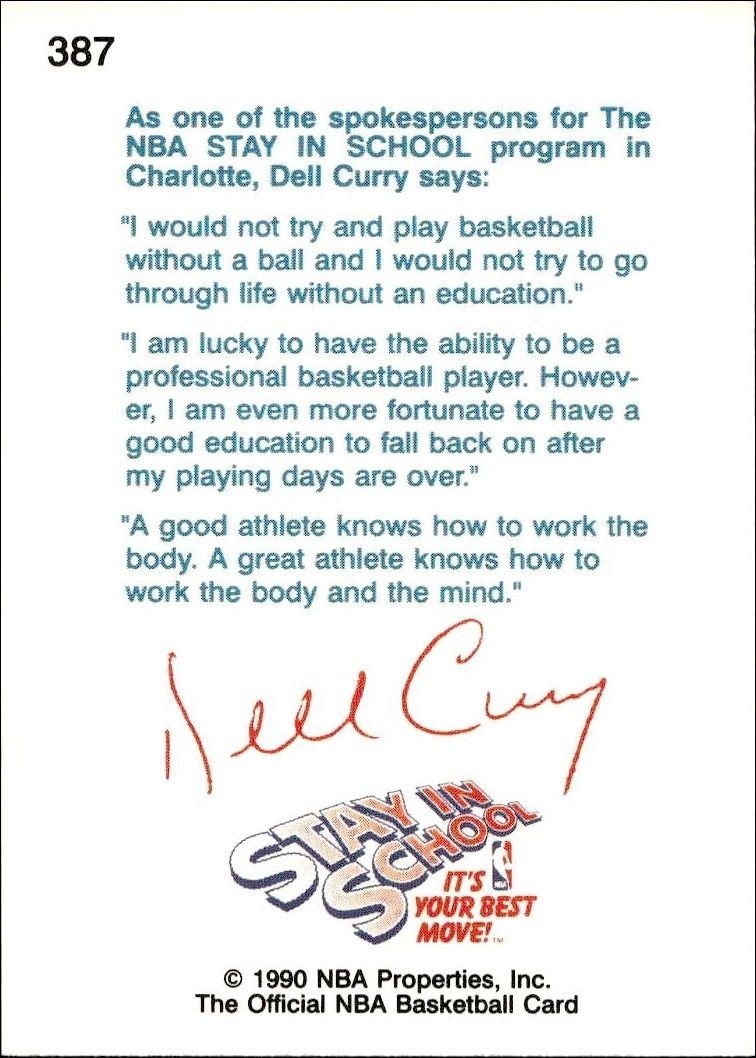 387
As one of the spokespersons for The
NBA STAY IN SCHOOL program in
Charlotte, Dell Curry says:
"I would not try and play basketball
without a ball and I would not try to go
through life without an education."
"I am lucky to have the ability to be a
professional basketball player. Howev-
er, I am even more fortunate to have a
good education to fall back on after
my playing days are over."
"A good athlete knows how to work the
body. A great athlete knows how to
work the body and the mind."
Dell Curry
STAY IN
SCHOOL
IT'S
YOUR BEST
MOVE!™
© 1990 NBA Properties, Inc.
The Official NBA Basketball Card